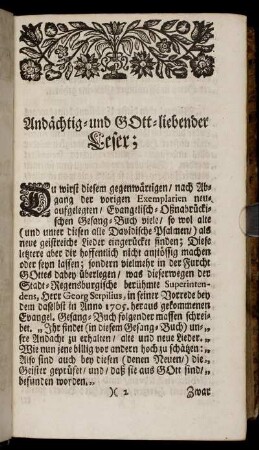 Andächtig-und GOtt-liebender
Leser;
DU wirst diesem gegenwärtigen/ nach Ab-
gang der vorigen Exemplarien neu-
aufgelegten/ Evangelisch-Oßnabrücki-
schen Gesang-Buch viele/ so wol alte
(und unter diesen alle Davidische Psalmen/) als
neue geistreiche Lieder eingerücket finden; Diese
letztere aber dir hoffentlich nicht anstößig machen
oder seyn lassen; sondern vielmehr in der Furcht
GOttes dabey überlegen/ was dieserwegen der
Stadt-Regensburgische berühmte Superinten-
dens, Herr Georg Serpilius, in seiner Vorrede bey
dem daselbst in Anno 1705. heraus gekommenen
Evangel. Gesang-Buch folgender massen schrei-
bet. „ Ihr findet (in diesem Gesang-Buch) un-„
sre Andacht zu erhalten/ alte und neue Lieder. „
Wie nun jene billig vor andern hoch zu schätzen: „
Also sind auch bey diesen (denen Neuen/) die „
Geister geprüfet/ und/ daß sie aus GOtt sind/ „
befunden worden. „
)( 2 Zwar